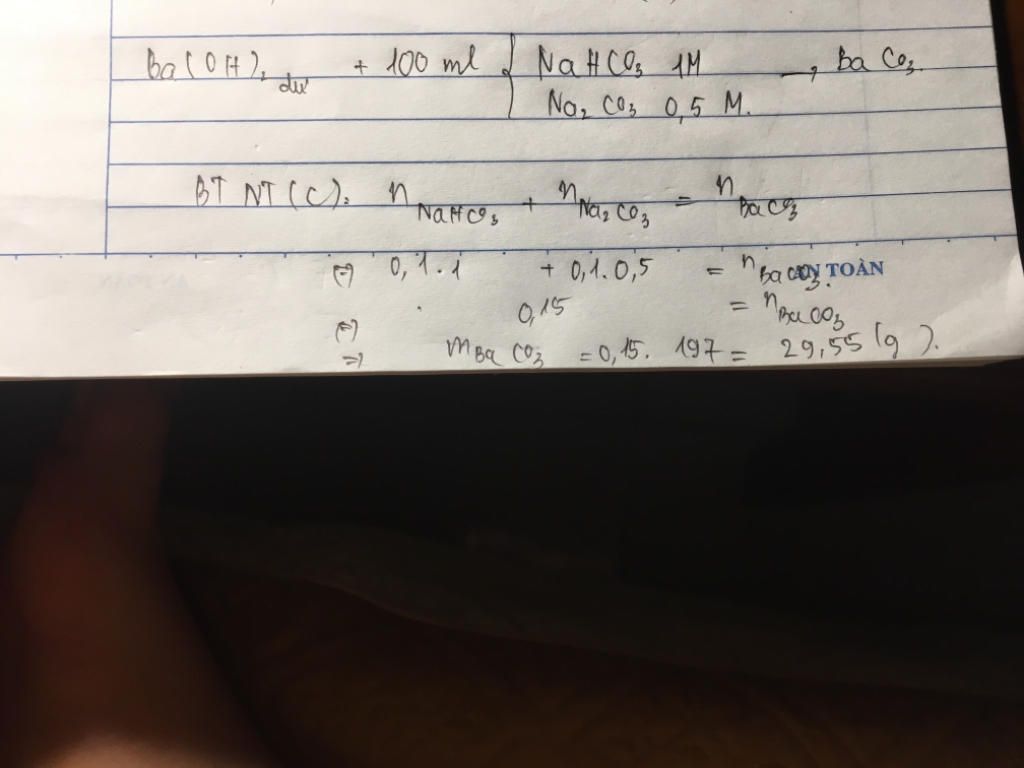 Ba(OH)₂ dư + 100 ml { NaHCO₃ 1M → BaCO₃.
Na₂CO₃ 0,5 M.
BT NT (C): nNaHCO₃ + nNa₂CO₃ = nBaCO₃
(=) 0,1.1 + 0,1.0,5 = nBaCO₃.
AN TOÀN
(=) 0,15 = nBaCO₃
=) mBaCO₃ = 0,15. 197 = 29,55 (g).